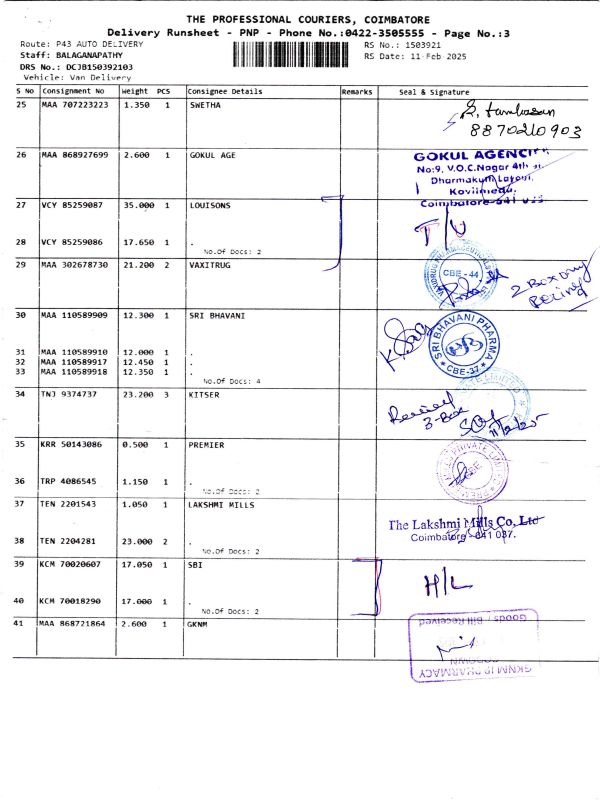 THE PROFESSIONAL COURIERS, COIMBATORE
Delivery Runsheet - PNP - Phone No.:0422-3505555 - Page No.:3
Route: P43 AUTO DELIVERY RS No.: 1503921
Staff: BALAGANAPATHY RS Date: 11-Feb-2025
DRS No.: DCJB150392103
Vehicle: Van Delivery
S No Consignment No Weight PCS Consignee Details Remarks Seal & Signature
25 MAA 707223223 1.350 1 SWETHA
8870210903
26 MAA 868927699 2.600 1 GOKUL AGE
GOKUL AGENCI
No:9, V.O.C.Nagar 4th
Dharmakum Layout,
Kovilmedu,
Coimbatore-641 025
27 VCY 85259087 35.000 1 LOUISONS
28 VCY 85259086 17.650 1 .
No.Of Docs: 2
29 MAA 302678730 21.200 2 VAXITRUG
CBE - 44
2 Box only
30 MAA 110589909 12.300 1 SRI BHAVANI
SRI BHAVANI PHARMA
CBE-37
31 MAA 110589910 12.000 1 .
32 MAA 110589917 12.450 1 .
33 MAA 110589918 12.350 1 .
No.Of Docs: 4
34 TNJ 9374737 23.200 3 KITSER
Received
3-Box
35 KRR 50143086 0.500 1 PREMIER
36 TRP 4086545 1.150 1 .
No.Of Docs: 2
37 TEN 2201543 1.050 1 LAKSHMI MILLS
The Lakshmi Mills Co, Ltd
Coimbatore - 641 037.
38 TEN 2204281 23.000 2 .
No.Of Docs: 2
39 KCM 70020607 17.050 1 SBI
H/L
40 KCM 70018290 17.000 1 .
No.Of Docs: 2
41 MAA 868721864 2.600 1 GKNM
Goods / Bill Received
GKNM IP PHARMACY